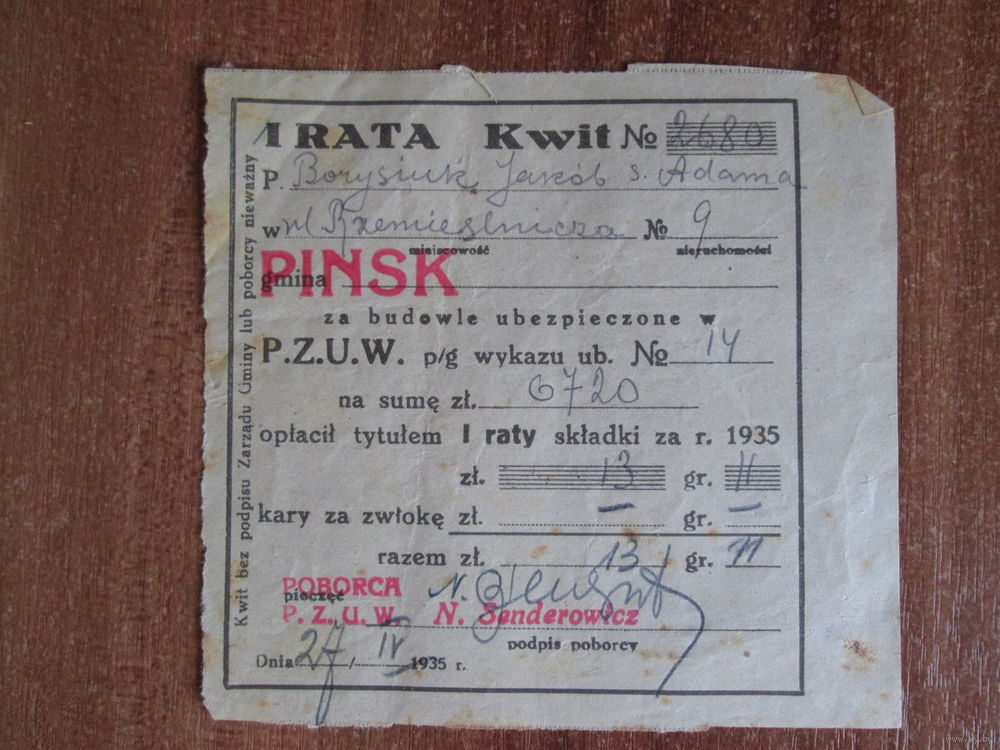 I RATA Kwit № 2680
P. Borysiuk Jakób s. Adama
w ul Rzemieslnicza № 9
miejscowość nieruchomości
PINSK
gmina
za budowle ubezpieczone w
P.Z.U.W. p/g wykazu ub. № 14
na sumę zł. 6720
opłacił tytułem I raty składki za r. 1935
zł. 13 gr. 11
kary za zwłokę zł. — gr. —
razem zł. 13 gr. 11
POBORCA
pieczęć
P. Z. U. W. N. Senderowicz
podpis poborcy
Dnia 27/IV 1935 r.
Kwit bez podpisu Zarządu Gminy lub poborcy nieważny